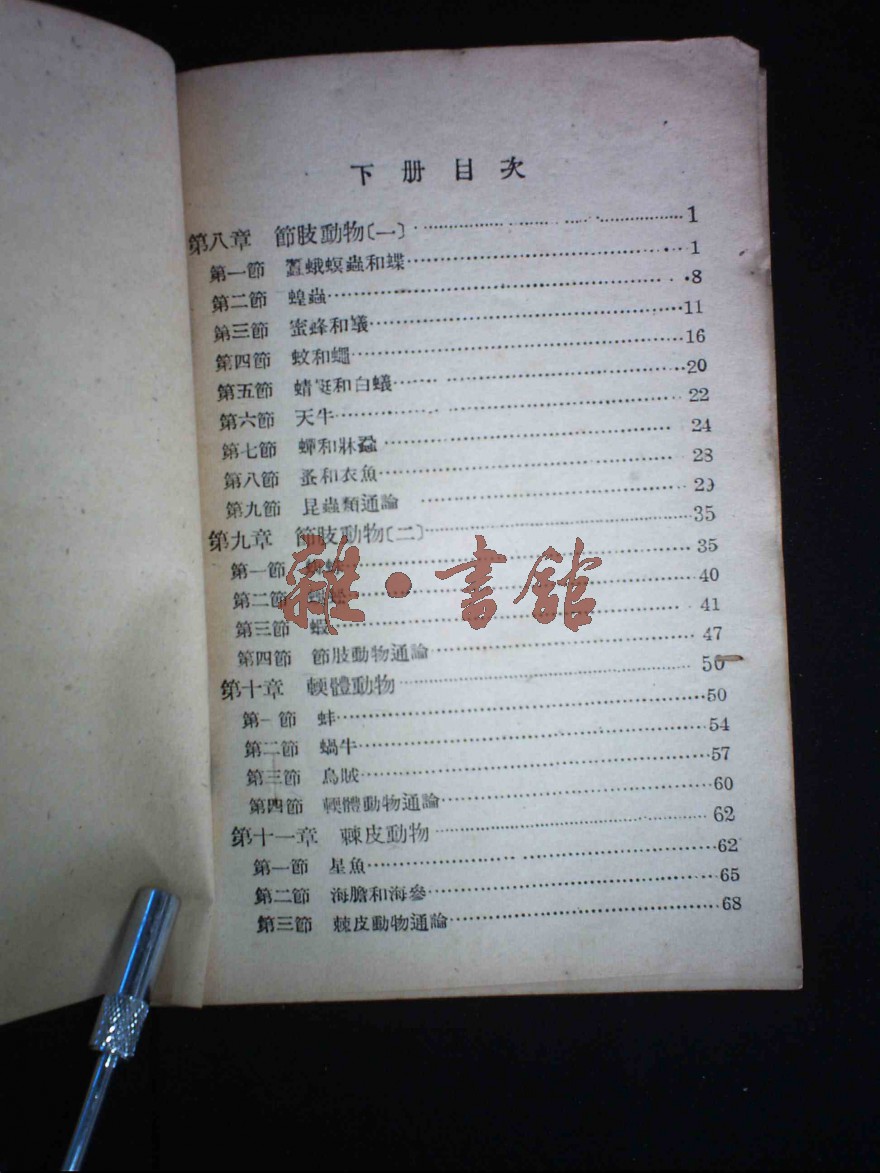 下册目次
第八章 節肢動物〔一〕 1
第一節 蠶蛾螟蟲和蝶 1
第二節 蝗蟲 8
第三節 蜜蜂和蟻 11
第四節 蚊和蠅 16
第五節 蜻蜓和白蟻 20
第六節 天牛 22
第七節 蟬和牀蝨 24
第八節 蚤和衣魚 28
第九節 昆蟲類通論 29
第九章 節肢動物〔二〕 35
第一節 蜘蛛 35
第二節 40
第三節 蝦 41
第四節 節肢動物通論 47
第十章 軟體動物 50
第一節 蚌 50
第二節 蝸牛 54
第三節 烏賊 57
第四節 軟體動物通論 60
第十一章 棘皮動物 62
第一節 星魚 62
第二節 海膽和海參 65
第三節 棘皮動物通論 68
雜·書館